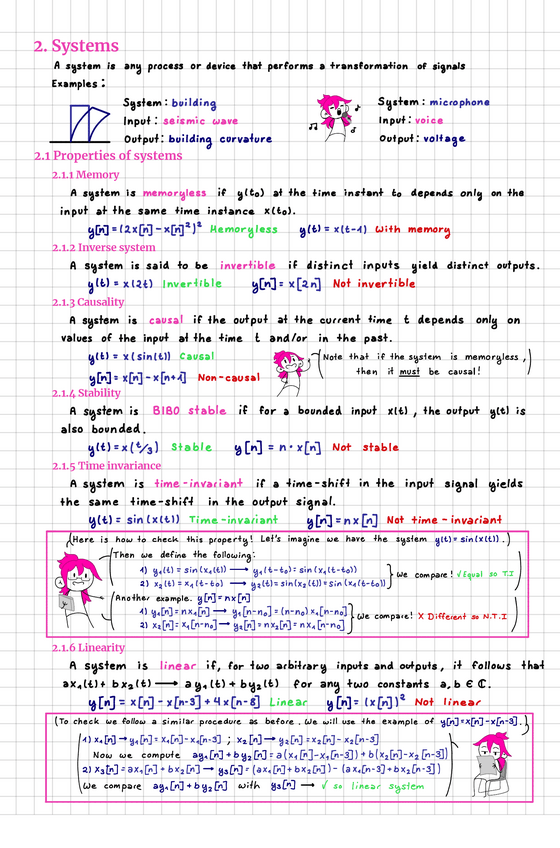 2. Systems
A system is any process or device that performs a transformation of signals
Examples:
System: building
Input: seismic wave
Output: building curvature
System: microphone
Input: voice
Output: voltage
2.1 Properties of systems
2.1.1 Memory
A system is memoryless if y(t₀) at the time instant t₀ depends only on the
input at the same time instance x(t₀).
y[n] = (2x[n] - x[n]²)² Memoryless y(t) = x(t-1) With memory
2.1.2 Inverse system
A system is said to be invertible if distinct inputs yield distinct outputs.
y(t) = x(2t) Invertible y[n] = x[2n] Not invertible
2.1.3 Causality
A system is causal if the output at the current time t depends only on
values of the input at the time t and/or in the past.
y(t) = x(sin(t)) Causal
y[n] = x[n] - x[n+1] Non-causal
(Note that if the system is memoryless,
then it must be causal!)
2.1.4 Stability
A system is BIBO stable if for a bounded input x(t), the output y(t) is
also bounded.
y(t) = x(t/3) Stable y[n] = n · x[n] Not stable
2.1.5 Time invariance
A system is time-invariant if a time-shift in the input signal yields
the same time-shift in the output signal.
y(t) = sin(x(t)) Time-invariant y[n] = nx[n] Not time-invariant
(Here is how to check this property! Let's imagine we have the system y(t) = sin(x(t)).)
Then we define the following:
1) y₁(t) = sin(x₁(t)) → y₁(t-t₀) = sin(x₁(t-t₀))
2) x₂(t) = x₁(t-t₀) → y₂(t) = sin(x₂(t)) = sin(x₁(t-t₀))
We compare! √Equal so T.I
Another example. y[n] = nx[n]
1) y₁[n] = nx₁[n] → y₁[n-n₀] = (n-n₀)x₁[n-n₀]
2) x₂[n] = x₁[n-n₀] → y₂[n] = nx₂[n] = nx₁[n-n₀]
We compare! X Different so N.T.I
2.1.6 Linearity
A system is linear if, for two arbitrary inputs and outputs, it follows that
ax₁(t) + bx₂(t) → ay₁(t) + by₂(t) for any two constants a, b ∈ ℂ.
y[n] = x[n] - x[n-3] + 4x[n-8] Linear y[n] = (x[n])² Not linear
(To check we follow a similar procedure as before. We will use the example of y[n]=x[n]-x[n-3].)
1) x₁[n] → y₁[n] = x₁[n] - x₁[n-3] ; x₂[n] → y₂[n] = x₂[n] - x₂[n-3]
Now we compute ay₁[n] + by₂[n] = a(x₁[n] - x₁[n-3]) + b(x₂[n] - x₂[n-3])
2) x₃[n] = ax₁[n] + bx₂[n] → y₃[n] = (ax₁[n] + bx₂[n]) - (ax₁[n-3] + bx₂[n-3])
We compare ay₁[n] + by₂[n] with y₃[n] → √ so linear system